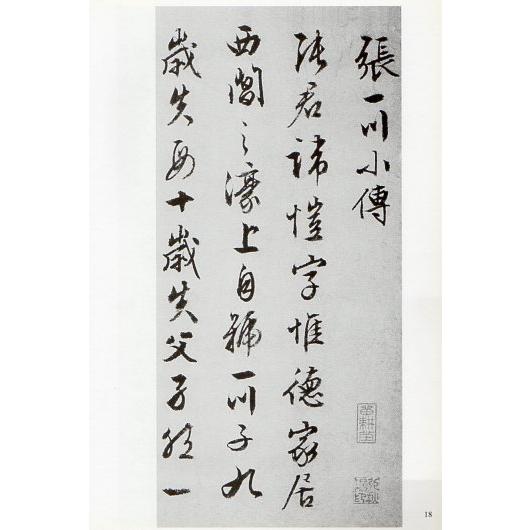 張一川小傳
張君諱愷字惟德家居
西閶之濠上自號一川子九
歲失母十歲失父孑然一
18